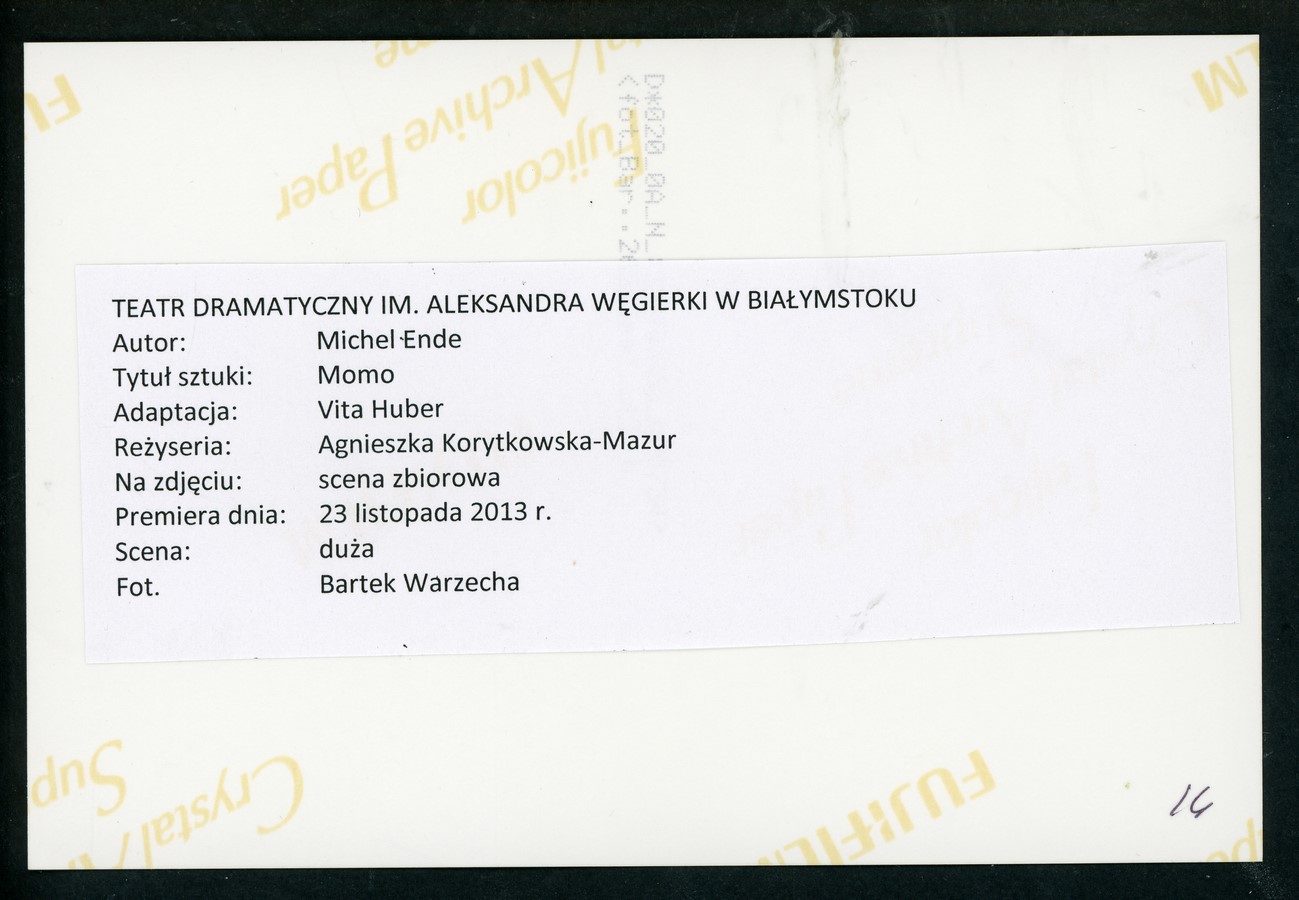 FU
Crystal/Archive Paper
Fujicolor
LM
D*020_0A_N_
<fot_Bar..2
TEATR DRAMATYCZNY IM. ALEKSANDRA WĘGIERKI W BIAŁYMSTOKU
Autor: Michel Ende
Tytuł sztuki: Momo
Adaptacja: Vita Huber
Reżyseria: Agnieszka Korytkowska-Mazur
Na zdjęciu: scena zbiorowa
Premiera dnia: 23 listopada 2013 r.
Scena: duża
Fot. Bartek Warzecha
Sup
Crystal/Ar
FUJIFILM
14